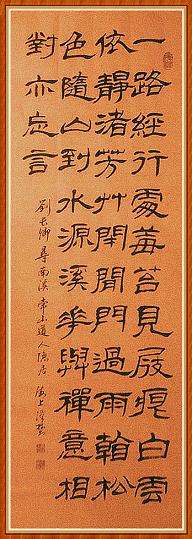 一路經行處莓苔見屐痕白雲
依靜渚芳艸閉閒門過雨看松
色隨山到水源溪華與禪意相
對亦忘言
劉長卿尋南溪常山道人隱居 海上